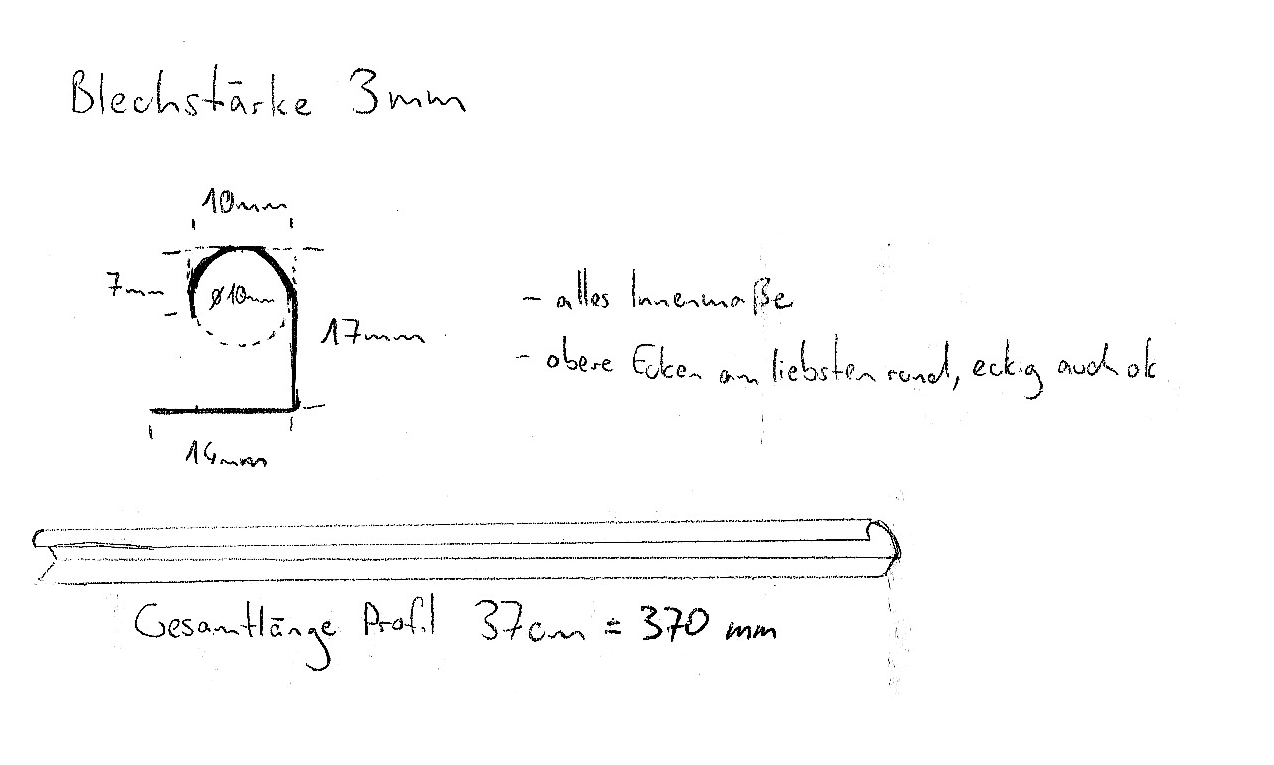 Blechstärke 3mm
10mm
7mm
ø10mm
17mm
14mm
- alles Innenmaße
- obere Ecken am liebsten rund, eckig auch ok
Gesamtlänge Profil 37cm = 370 mm